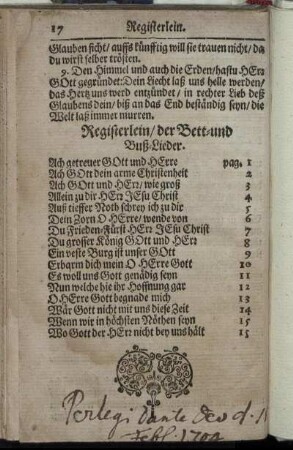 17 Registerlein.
Glauben sicht/ auffs künfftig will sie trauen nicht/ da
du wirst selber trösten.
9. Den Himmel und auch die Erden/ hastu HErr
GOtt gegründet: Dein Liecht laß uns helle werden/
das Hertz uns werd entzündet/ in rechter Lieb deß
Glaubens dein/ biß an das End beständig seyn/ die
Welt laß immer murren.
Registerlein/ der Bett- und
Buß-Lieder.
Ach getreuer GOtt und HErre pag. 1
Ach GOtt dein arme Christenheit 2
Ach GOtt und HErr/ wie groß 3
Allein zu dir HErr JEsu Christ 4
Auß tieffer Noth schrey ich zu dir 5
Dein Zorn O HErre/ wende von 6
Du Frieden-Fürst HErr JEsu Christ 7
Du grosser König GOtt und HErr 8
Ein veste Burg ist unser GOtt 9
Erbarm dich mein O HErre Gott 10
Es woll uns Gott genädig seyn 11
Nun welche hie ihr Hoffnung gar 12
O HErre Gott begnade mich 13
Wär Gott nicht mit uns diese Zeit 14
Wenn wir in höchsten Nöthen seyn 15
Wo Gott der HErr nicht bey uns hält 15
Perlegi dante deo d.
Febr. 1700